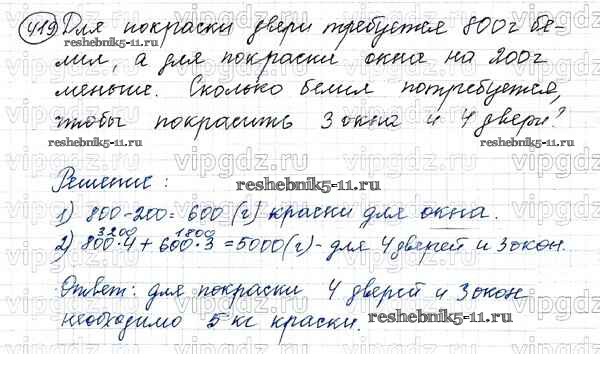 419 Для покраски двери требуется 800г бе-
лил, а для покраски окна на 200г
меньше. Сколько белил потребуется,
чтобы покрасить 3 окна и 4 двери?
Решение:
1) 800-200=600 (г) краски для окна.
3200 1800
2) 800·4+600·3=5000(г)- для 4 дверей и 3 окон.
Ответ: для покраски 4 дверей и 3 окон
необходимо 5 кг краски.
reshebnik5-11.ru
reshebnik5-11.ru
reshebnik5-11.ru
reshebnik5-11.ru
reshebnik5-11.ru
vipgdz.ru